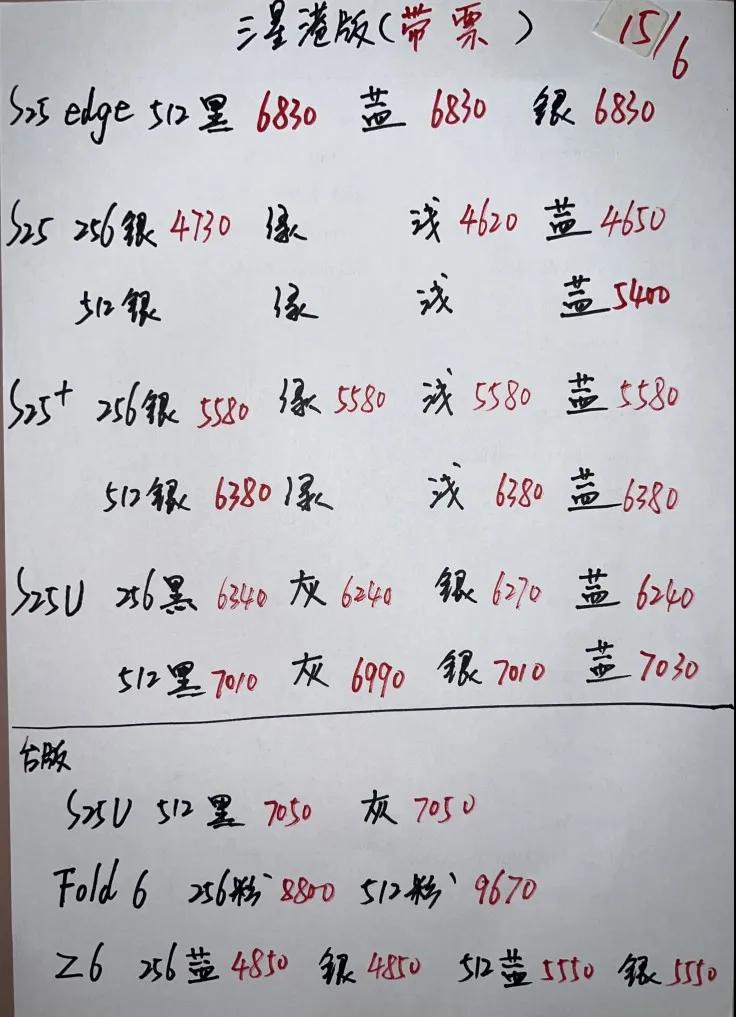 三星港版(带票) 15/6
S25 edge 512黑 6830 蓝 6830 銀 6830
S25 256銀 4730 绿 浅 4620 蓝 4650
512銀 绿 浅 蓝 5400
S25+ 256銀 5580 绿 5580 浅 5580 蓝 5580
512銀 6380 绿 浅 6380 蓝 6380
S25U 256黑 6340 灰 6240 銀 6270 蓝 6240
512黑 7010 灰 6990 銀 7010 蓝 7030
台版
S25U 512黑 7050 灰 7050
Fold 6 256粉 8800 512粉 9670
Z6 256蓝 4850 銀 4850 512蓝 5550 銀 5550